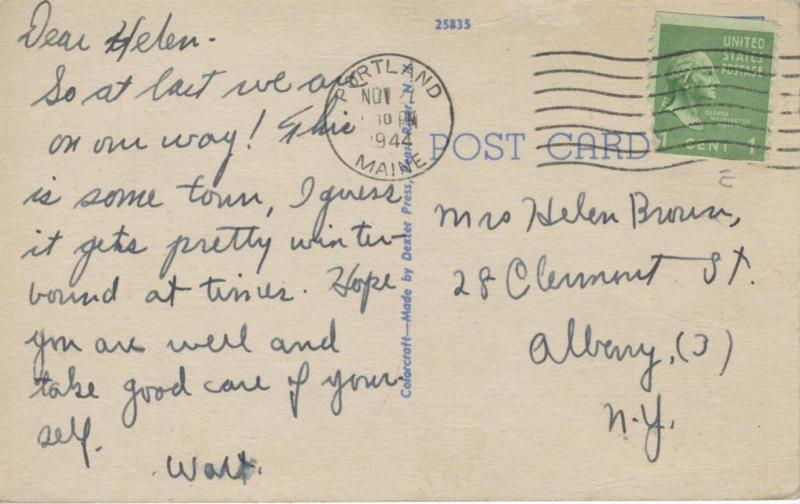 25835
Dear Helen.
So at last we are
on our way! This
is some town, I guess
it gets pretty winter-
bound at times. Hope
you are well and
take good care of your-
self.
Walt.
PORTLAND
NOV
30 PM
1944
MAINE
Colorcraft—Made by Dexter Press, Pearl River, N.Y.
POST CARD
UNITED
STATES
POSTAGE
GEORGE
WASHINGTON
1 CENT 1
Mrs Helen Brown,
28 Clermont St.
Albany, (3)
N.Y.